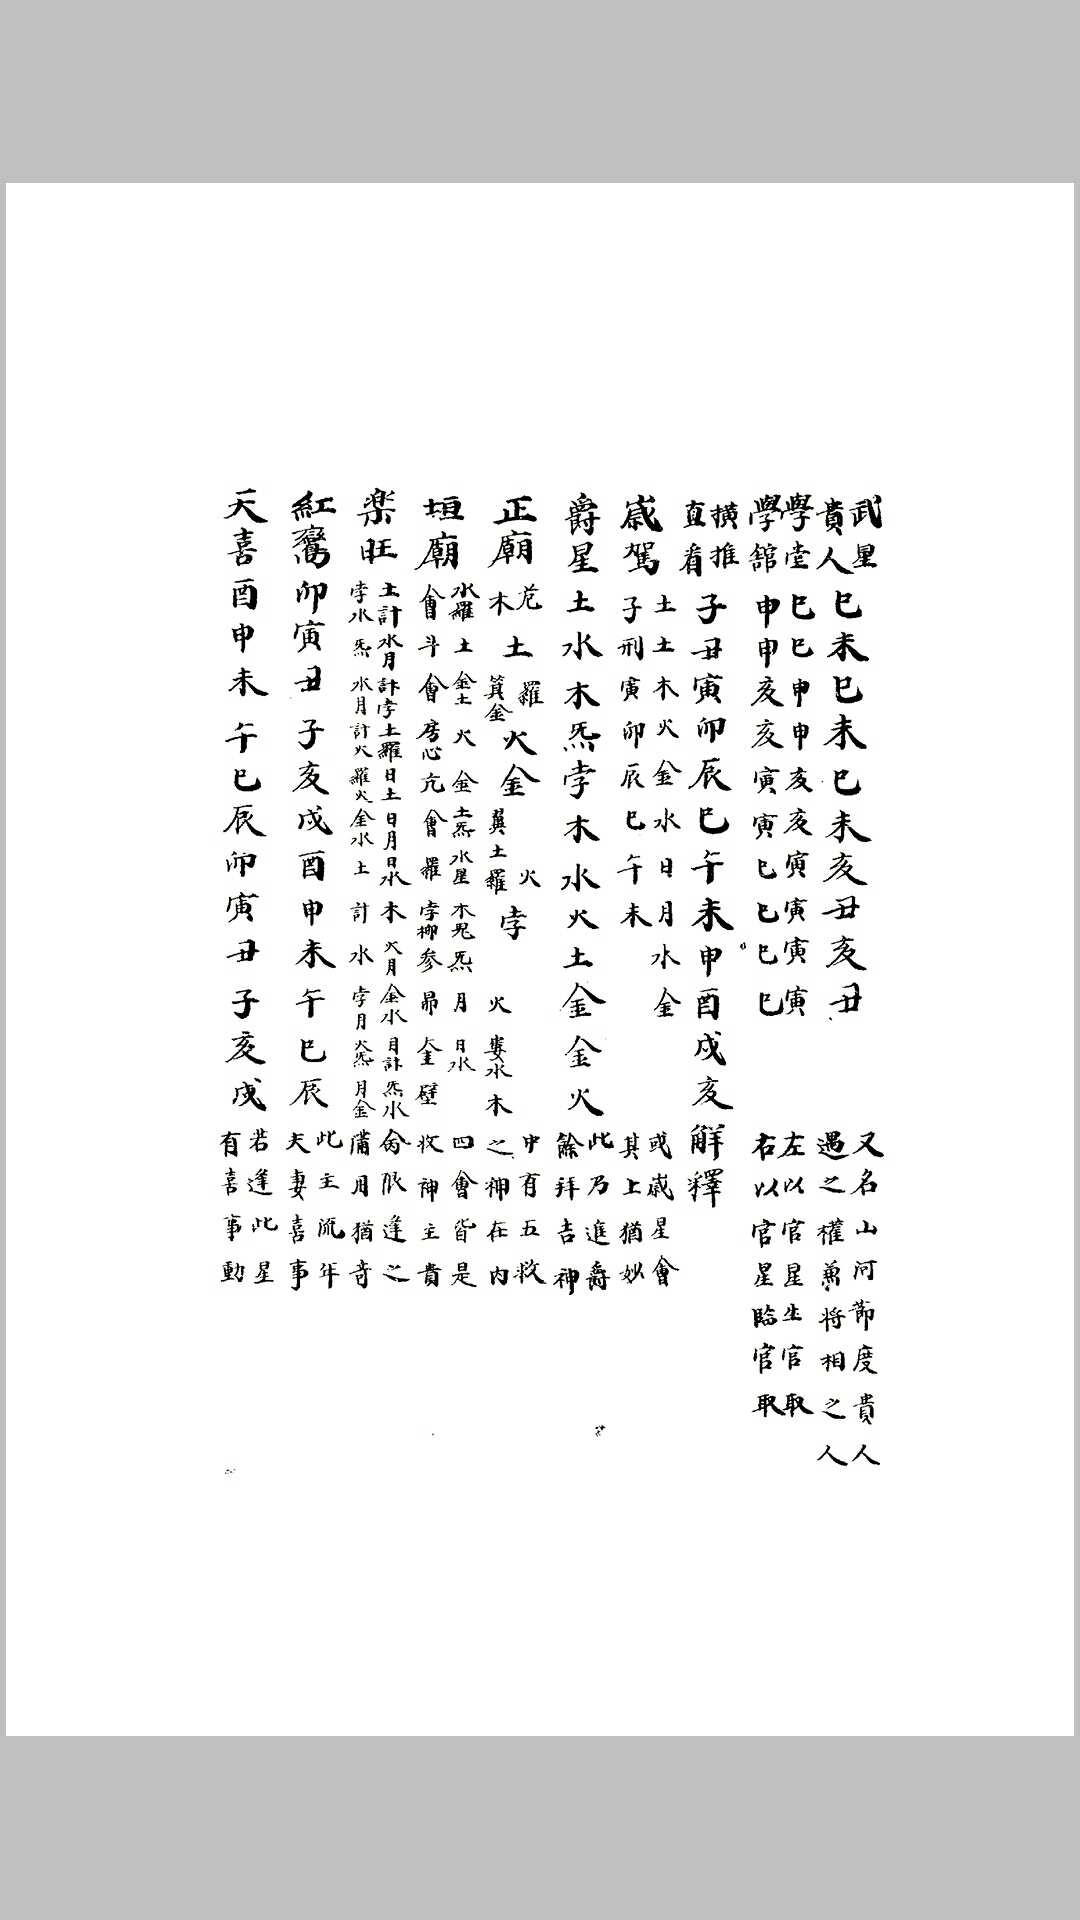 武星貴人 巳未巳未巳未亥丑亥丑 又名山河節度貴人遇之權兼將相之人
學堂 巳巳申申亥亥寅寅寅寅 左以官星生官取
學館 申申亥亥寅寅巳巳巳巳 右以官星臨官取
橫推直看 子丑寅卯辰巳午未申酉戌亥 解釋
歲駕 土土木火金水日月水金 或歲星會
子刑寅卯辰巳午未 其上猶妙
爵星 土水木炁孛木水火土金金火 此乃進爵餘拜吉神
正廟 危木 土 羅箕金 火 金 翼土 火羅 孛 火 婁水 木 中有五救之神在內
垣廟 水羅 土 金土 火 金 土炁 水星 木鬼 炁 月 日水 四會皆是
會斗會房心亢會羅孛柳參昴奎壁 救神主貴
楽旺 土計 水月 計孛 土羅 日土 日月 日水 木 火月 金水 月計 炁水 命限逢之
孛水 炁 水月 計火 羅火 金水 土 計 水 孛月 火炁 月金 蒲月猶奇
紅鸞 卯寅丑子亥戌酉申未午巳辰 此主流年夫妻喜事
天喜 酉申未午巳辰卯寅丑子亥戌 若逢此星有喜事動